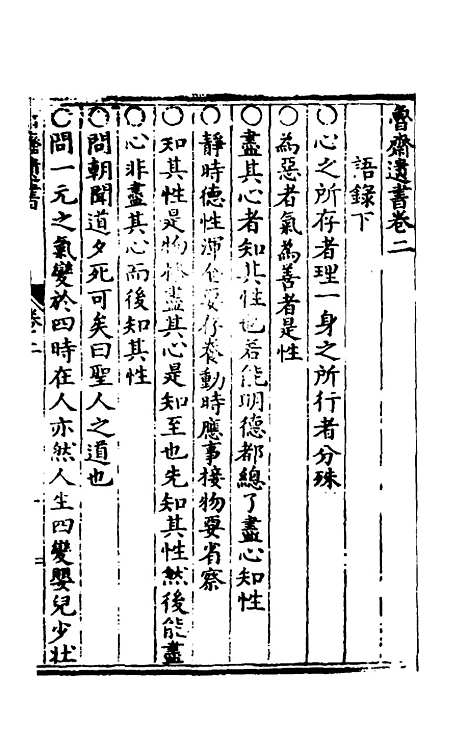 魯齋遺書卷二
語錄下
○心之所存者理一身之所行者分殊
○為惡者氣為善者是性
○盡其心者知其性也若能明德都總了盡心知性
○靜時德性渾全要存養動時應事接物要省察
○知其性是物格盡其心是知至也先知其性然後能盡
心非盡其心而後知其性
○問朝聞道夕死可矣曰聖人之道也
○問一元之氣變於四時在人亦然人生四變嬰兒少壯
齋遺書
卷二